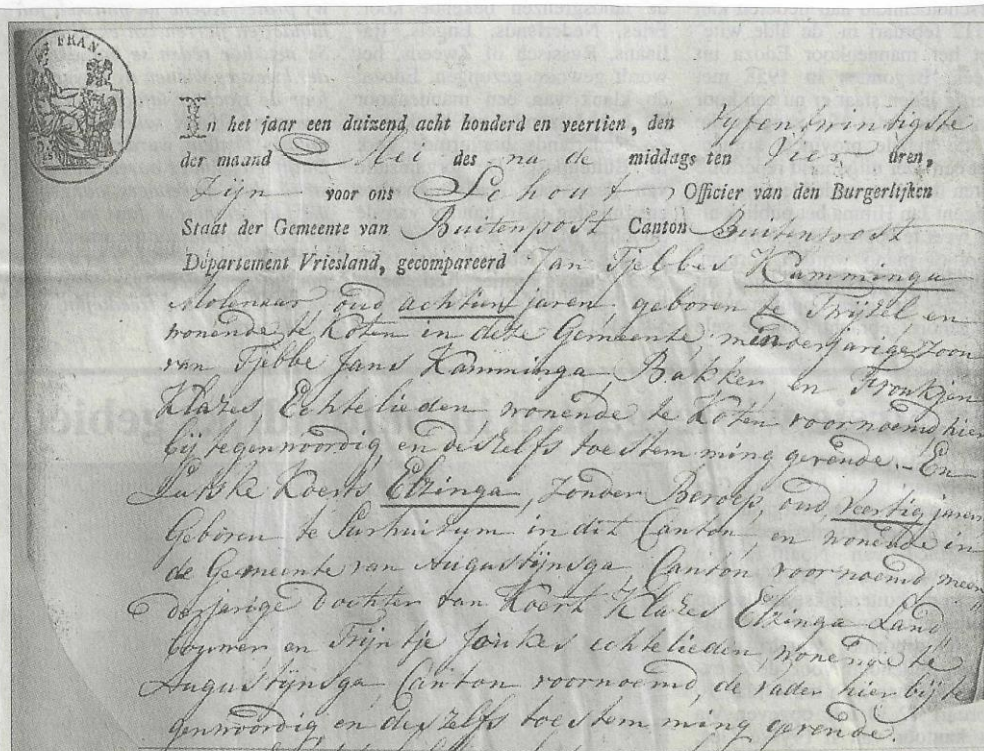 FRAN.
In het jaar een duizend, acht honderd en veertien, den Vyfentwintigste
der maand Mei des na de middags ten Vier uren,
Zijn voor ons Schout Officier van den Burgerlijken
Staat der Gemeente van Buitenpost Canton Buitenpost
Departement Vriesland, gecompareerd Jan Tjebbes Kamminga
Molenaar oud achtien jaren, geboren te Twijzel en
wonende te Koten in deze Gemeente minderjarige zoon
van Tjebbe Jans Kamminga, Bakker, en Froukjen
Klazes, Echtelieden wonende te Koten voornoemd, hier
bij tegenwoordig, en deszelfs toestemming gevende. - En
Lutske Koerts Elzinga, zonder Beroep, oud, veertig jaren
Geboren te Surhuizum in dit Canton, en wonende in
de Gemeente van Augustijnsga, Canton voornoemd, meer
derjarige Dochter van Koert Klazes Elzinga Land,,
bouwer en Trijntje Joukes echtelieden, wonende te
Augustijnsga, Canton voornoemd, de vader hier bij te
genwoordig en deszelfs toestemming gevende.